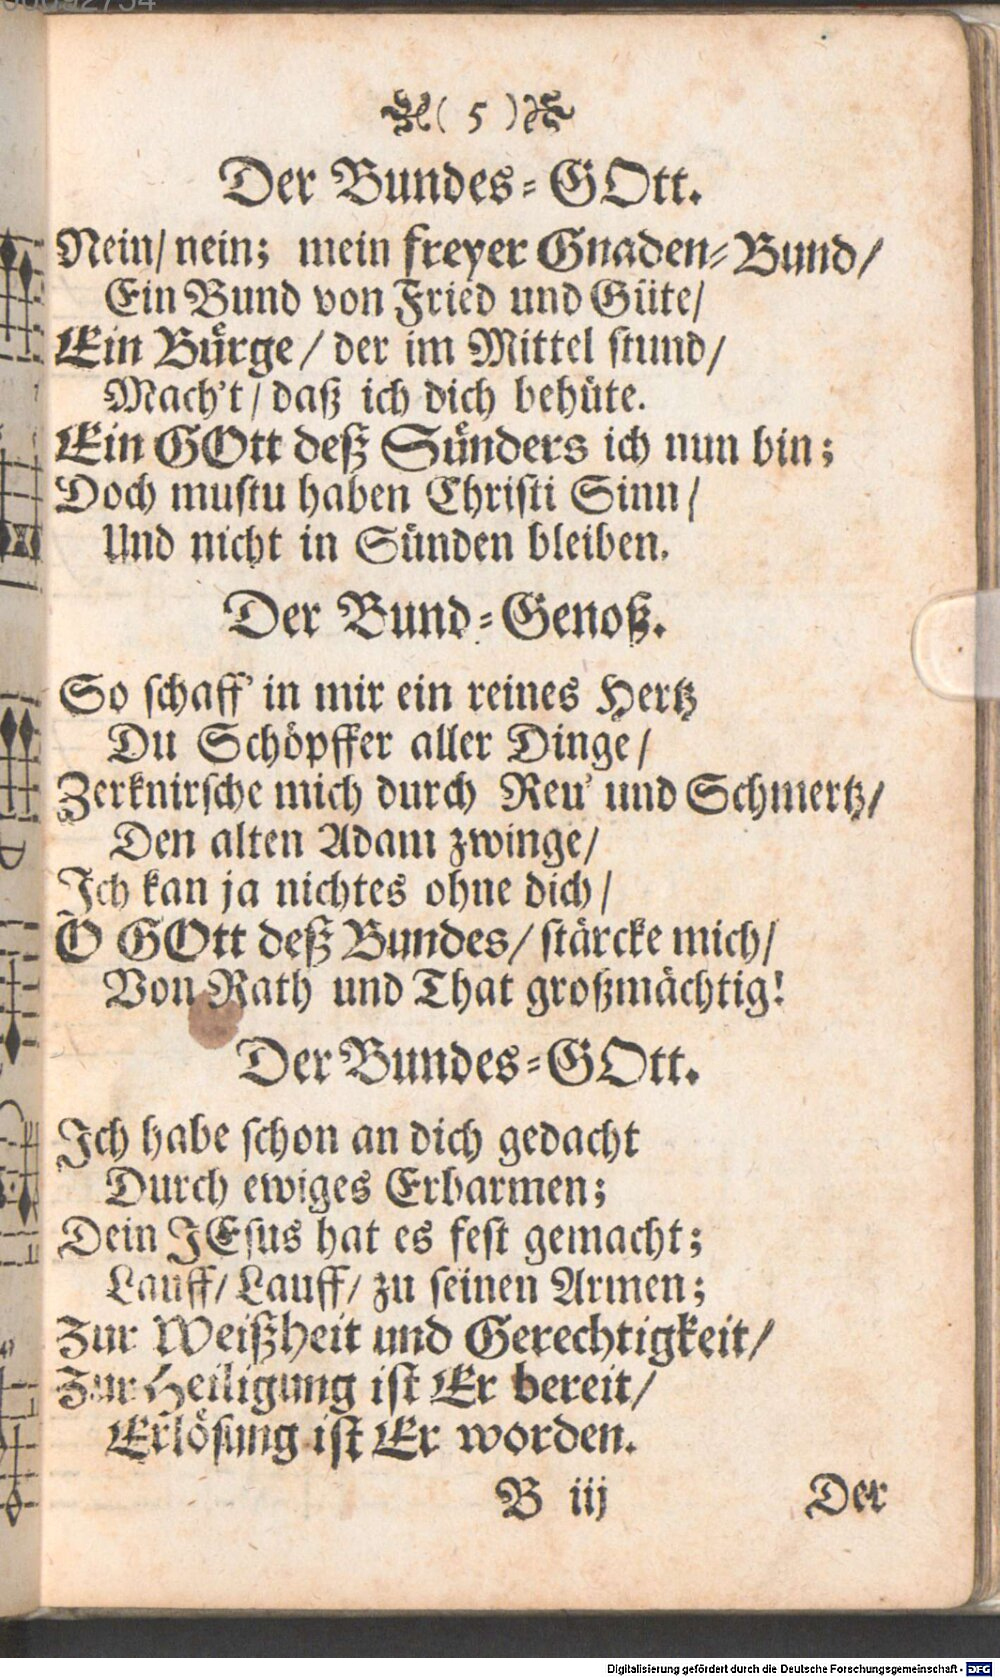 ( 5 )
Der Bundes-GOtt.
Nein/ nein; mein freyer Gnaden-Bund/
Ein Bund von Fried und Güte/
Ein Bürge/ der im Mittel stund/
Mach't/ daß ich dich behüte.
Ein GOtt deß Sünders ich nun bin;
Doch mustu haben Christi Sinn/
Und nicht in Sünden bleiben.
Der Bund-Genoß.
So schaff' in mir ein reines Hertz
Du Schöpffer aller Dinge/
Zerknirsche mich durch Reu' und Schmertz/
Den alten Adam zwinge/
Ich kan ja nichtes ohne dich/
O GOtt deß Bundes/ stärcke mich/
Von Rath und That großmächtig!
Der Bundes-GOtt.
Ich habe schon an dich gedacht
Durch ewiges Erbarmen;
Dein JEsus hat es fest gemacht;
Lauff/ Lauff/ zu seinen Armen;
Zur Weißheit und Gerechtigkeit/
Zur Heiligung ist Er bereit/
Erlösung ist Er worden.
B iij
Der
Digitalisierung gefördert durch die Deutsche Forschungsgemeinschaft - DFG